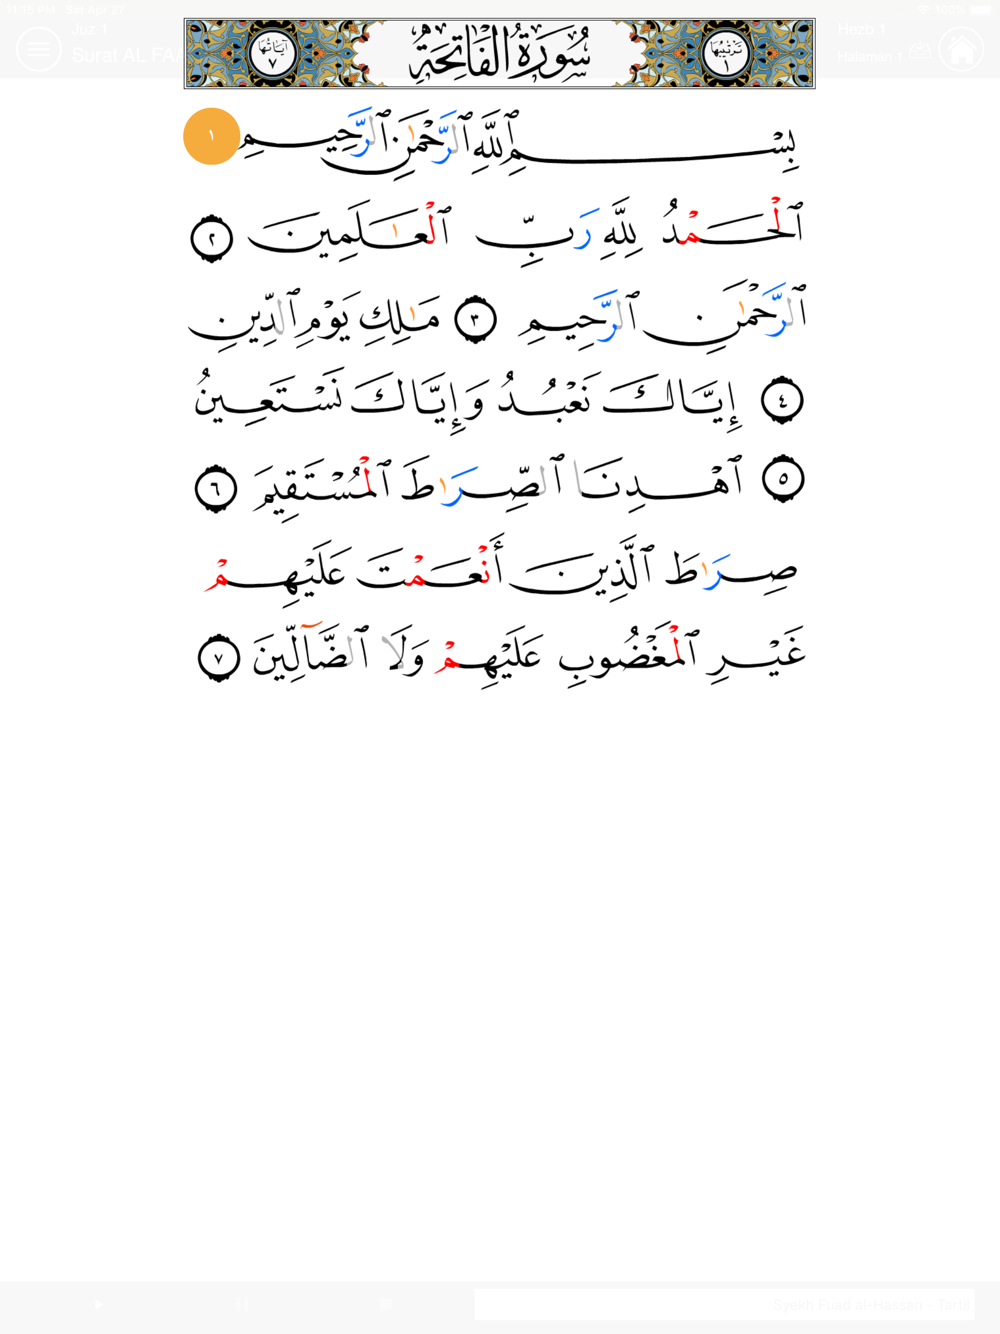 11:15 PM Sat Apr 27 100%
Juz 1 Hezb 1
Surat AL FAA Halaman 1
آيَاتُهَا ٧ سُورَةُ الْفَاتِحَةِ تَرْتِيبُهَا ١
بِسْمِ ٱللَّهِ ٱلرَّحْمَٰنِ ٱلرَّحِيمِ ١
ٱلْحَمْدُ لِلَّهِ رَبِّ ٱلْعَٰلَمِينَ ٢
ٱلرَّحْمَٰنِ ٱلرَّحِيمِ ٣ مَٰلِكِ يَوْمِ ٱلدِّينِ
٤ إِيَّاكَ نَعْبُدُ وَإِيَّاكَ نَسْتَعِينُ
٥ ٱهْدِنَا ٱلصِّرَٰطَ ٱلْمُسْتَقِيمَ ٦
صِرَٰطَ ٱلَّذِينَ أَنْعَمْتَ عَلَيْهِمْ
غَيْرِ ٱلْمَغْضُوبِ عَلَيْهِمْ وَلَا ٱلضَّآلِّينَ ٧